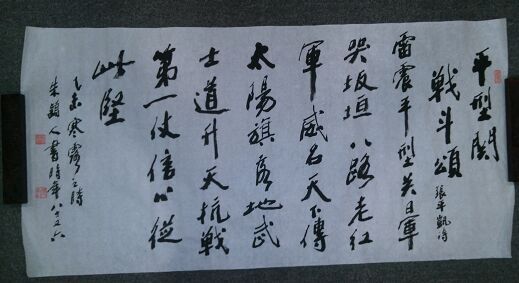 平型関
戦斗頌 張平凱诗
雷震平型关日軍
哭坂垣八路老红
軍威名天下傳
太陽旗落地武
士道升天抗戦
第一仗信心從
此堅
乙未寒露之時
朱人書時年八十又六